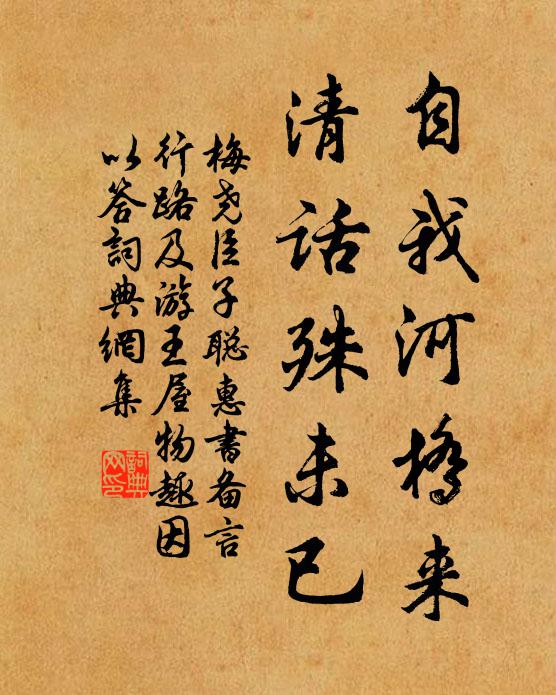 自我河桥来
清话殊未已
梅尧臣子聪惠书备言
行路及游王屋物趣因
以答词典網集
詞典
网印